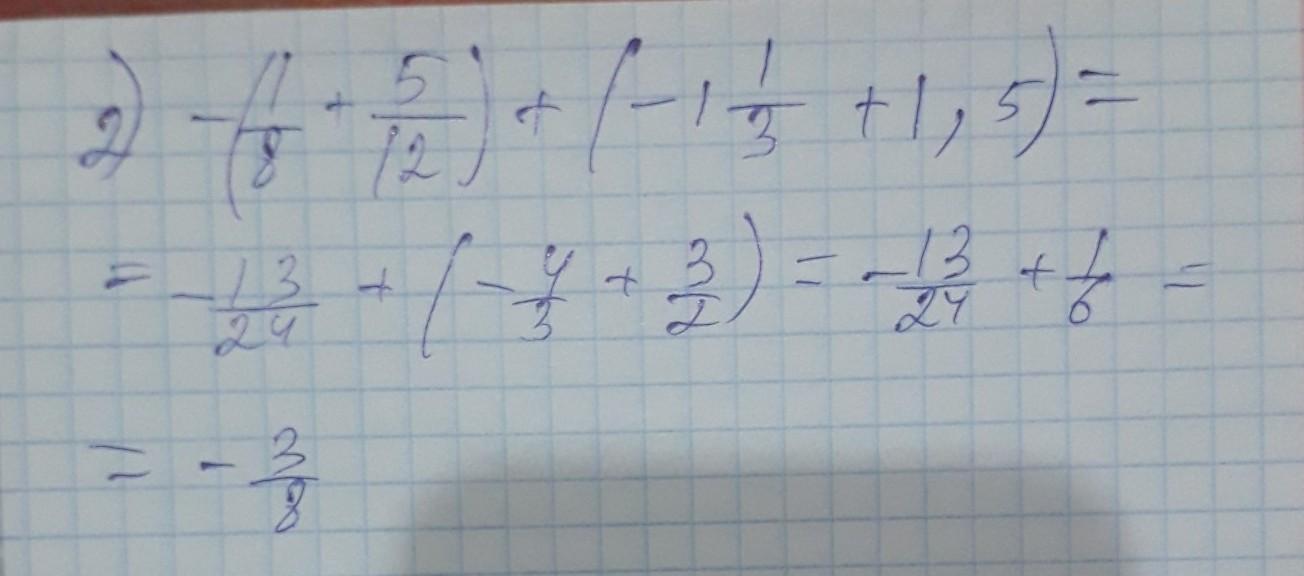 2) -(1/8 + 5/12) + (-1 1/3 + 1,5) =
= -13/24 + (-4/3 + 3/2) = -13/24 + 1/6 =
= -3/8